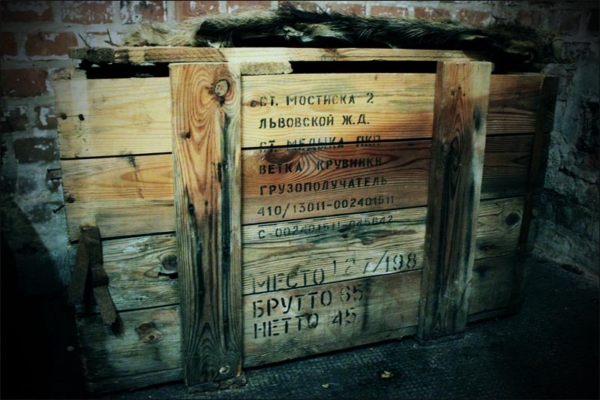 СТ. МОСТИСКА 2
ЛЬВОВСКОЙ Ж.Д.
СТ. МЕДЫКА ПКП
ВЕТКА КРУВНИКИ
ГРУЗОПОЛУЧАТЕЛЬ
410/13011-002401511
С-002401511-045642
МЕСТО 127/198
БРУТТО 65
НЕТТО 45